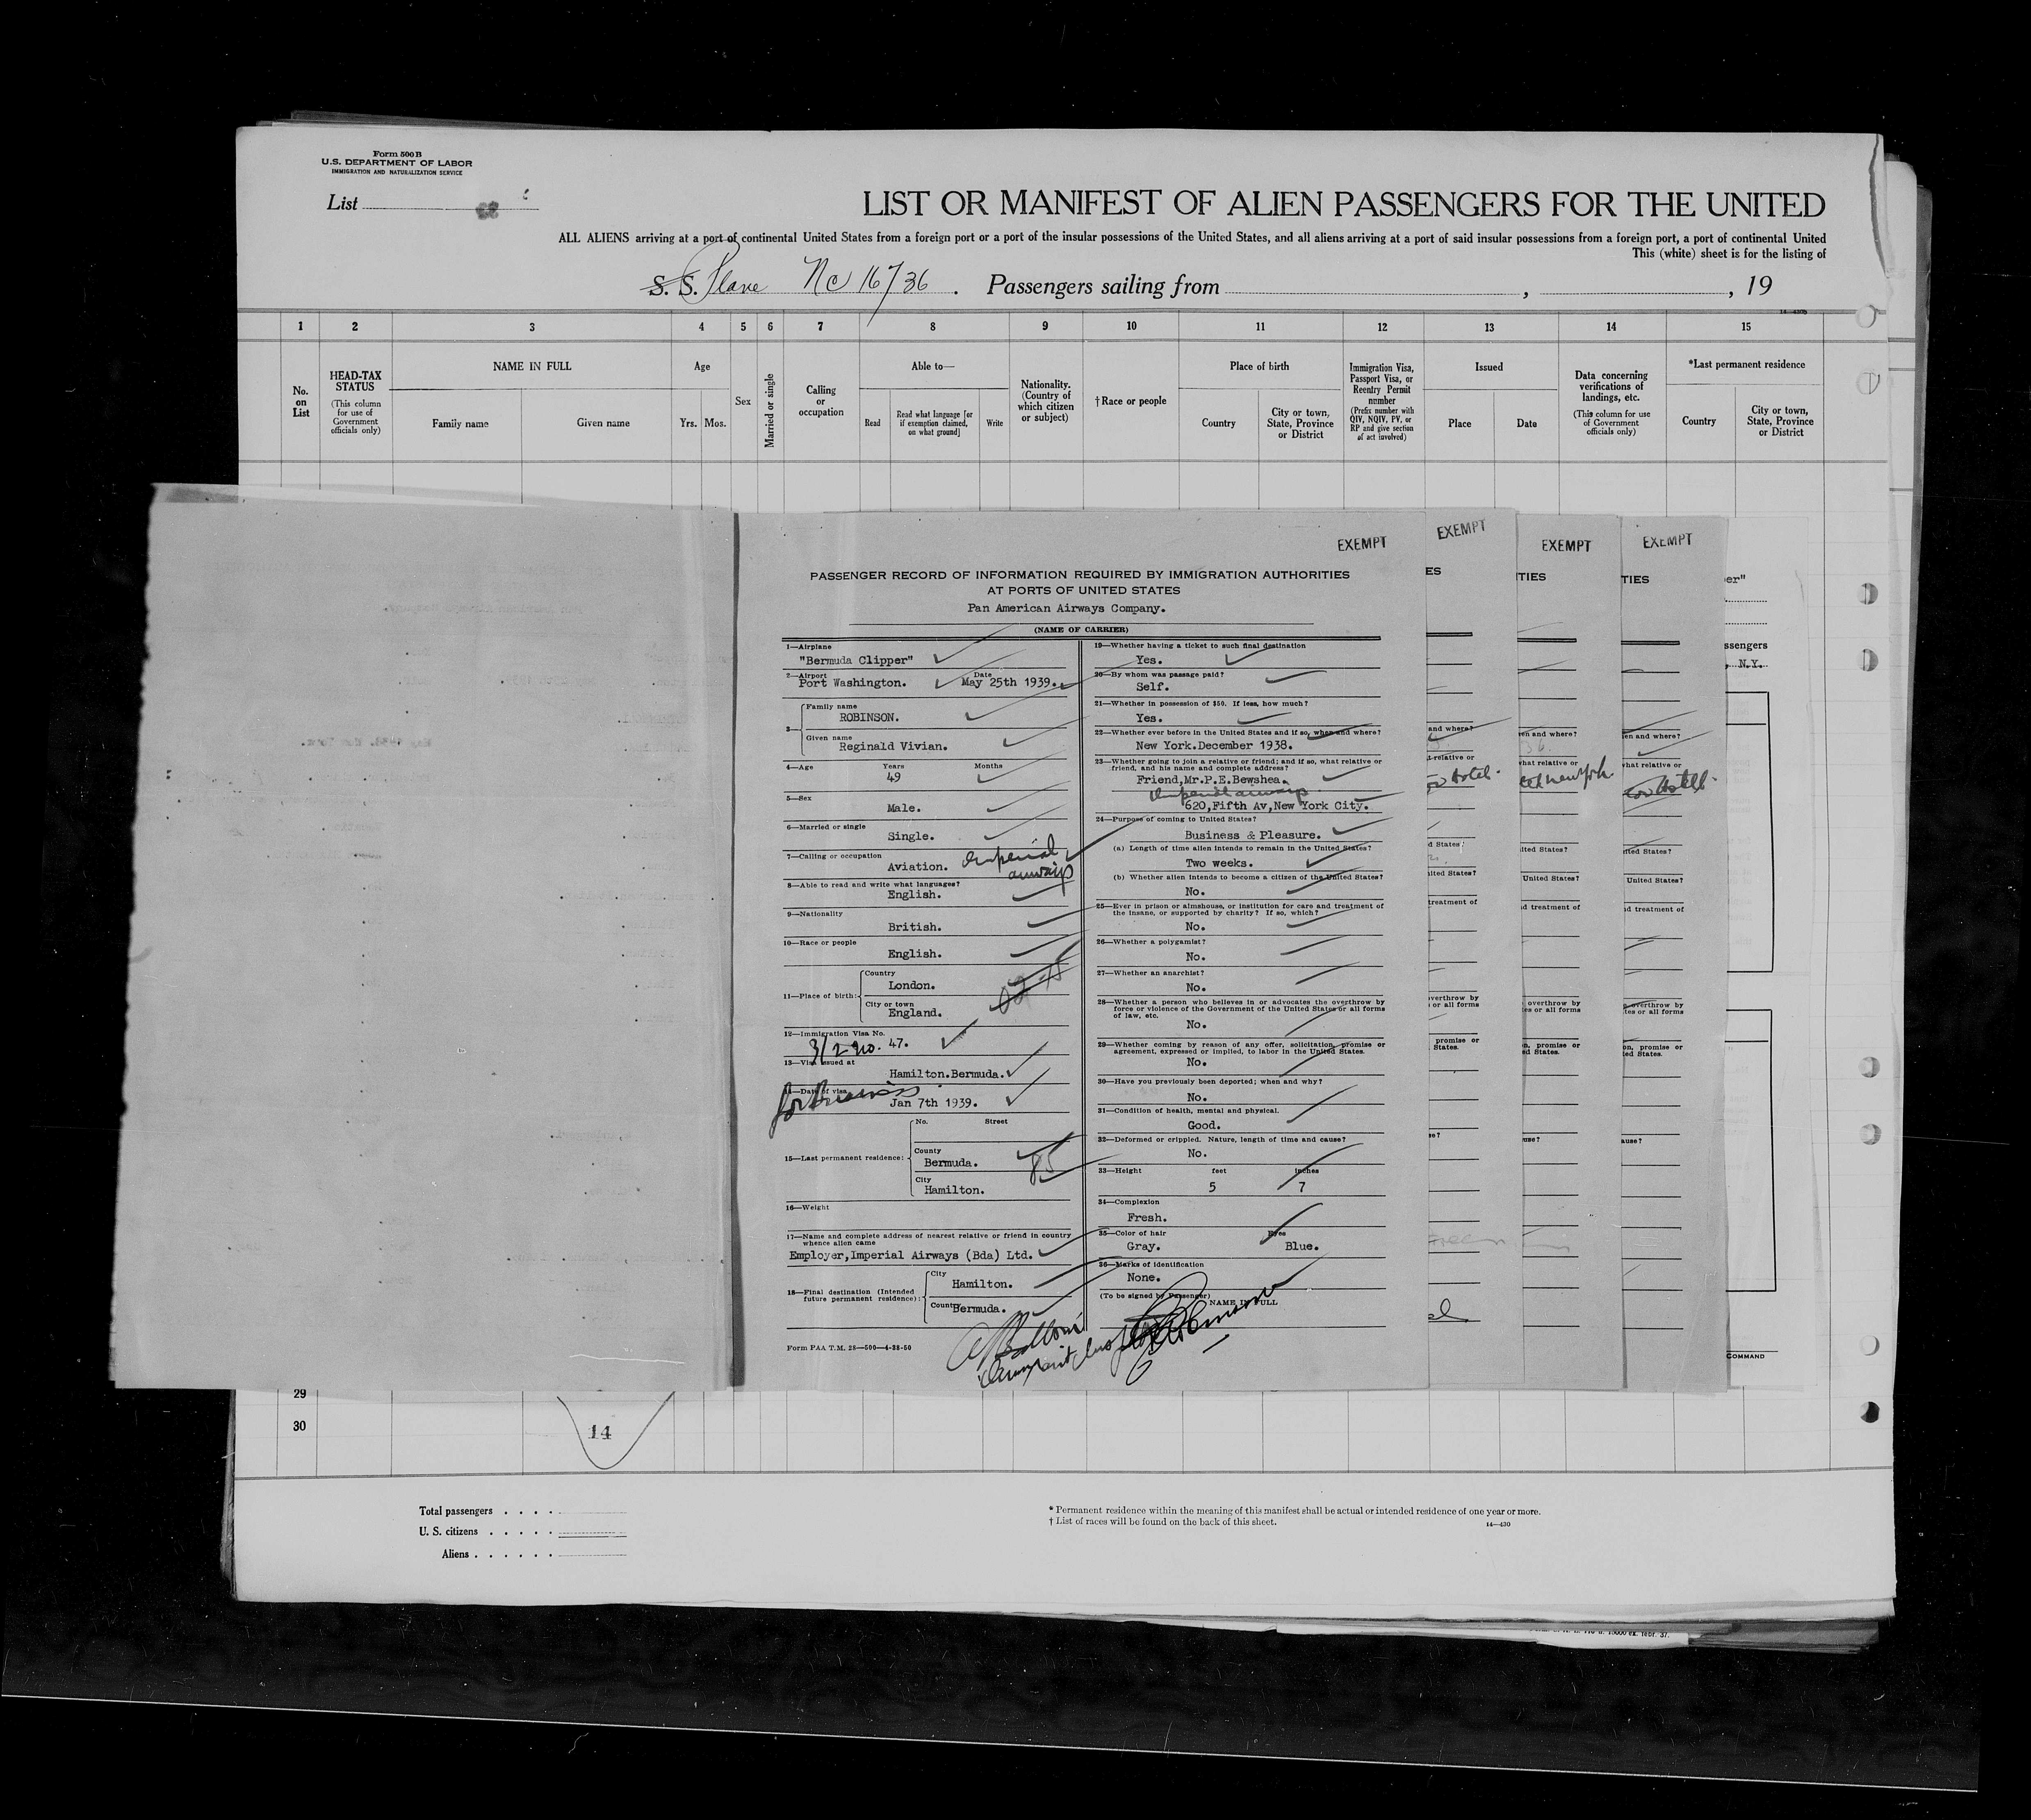 Form 500 B
U.S. DEPARTMENT OF LABOR
IMMIGRATION AND NATURALIZATION SERVICE
List
LIST OR MANIFEST OF ALIEN PASSENGERS FOR THE UNITED
ALL ALIENS arriving at a port of continental United States from a foreign port or a port of the insular possessions of the United States, and all aliens arriving at a port of said insular possessions from a foreign port, a port of continental United
This (white) sheet is for the listing of
S. S. Plane NC 16736 . Passengers sailing from , , 19
1 2 3 4 5 6 7 8 9 10 11 12 13 14 15
No. on List
HEAD-TAX STATUS
(This column for use of Government officials only)
NAME IN FULL
Family name Given name
Age
Yrs. Mos.
Sex
Married or single
Calling or occupation
Able to—
Read
Read what language [or if exemption claimed, on what ground]
Write
Nationality. (Country of which citizen or subject)
†Race or people
Place of birth
Country
City or town, State, Province or District
Immigration Visa, Passport Visa, or Reentry Permit number
(Prefix number with QIV, NQIV, PV, or RP and give section of act involved)
Issued
Place Date
Data concerning verifications of landings, etc.
(This column for use of Government officials only)
*Last permanent residence
Country
City or town, State, Province or District
EXEMPT
EXEMPT
EXEMPT
EXEMPT
PASSENGER RECORD OF INFORMATION REQUIRED BY IMMIGRATION AUTHORITIES
AT PORTS OF UNITED STATES
Pan American Airways Company.
(NAME OF CARRIER)
1—Airplane
"Bermuda Clipper"
2—Airport Date
Port Washington. May 25th 1939.
3— Family name
ROBINSON.
Given name
Reginald Vivian.
4—Age Years Months
49
5—Sex
Male.
6—Married or single
Single.
7—Calling or occupation
Aviation. Imperial airways
8—Able to read and write what languages?
English.
9—Nationality
British.
10—Race or people
English.
11—Place of birth:
Country
London.
City or town
England.
12—Immigration Visa No.
3/2 no. 47.
13—Visa issued at
Hamilton.Bermuda.
14—Date of visa
for Business
Jan 7th 1939.
15—Last permanent residence:
No. Street
County
Bermuda.
85
City
Hamilton.
16—Weight
17—Name and complete address of nearest relative or friend in country
whence alien came
Employer,Imperial Airways (Bda) Ltd.
18—Final destination (Intended
future permanent residence):
City
Hamilton.
County
Bermuda.
Form PAA T.M. 28—500—4-38-50
19—Whether having a ticket to such final destination
Yes.
20—By whom was passage paid?
Self.
21—Whether in possession of $50. If less, how much?
Yes.
22—Whether ever before in the United States and if so, when and where?
New York.December 1938.
23—Whether going to join a relative or friend; and if so, what relative or
friend, and his name and complete address?
Friend,Mr.P.E.Bewshea.
Imperial airways
620,Fifth Av,New York City.
24—Purpose of coming to United States?
Business & Pleasure.
(a) Length of time alien intends to remain in the United States?
Two weeks.
(b) Whether alien intends to become a citizen of the United States?
No.
25—Ever in prison or almshouse, or institution for care and treatment of
the insane, or supported by charity? If so, which?
No.
26—Whether a polygamist?
No.
27—Whether an anarchist?
No.
28—Whether a person who believes in or advocates the overthrow by
force or violence of the Government of the United States or all forms
of law, etc.
No.
29—Whether coming by reason of any offer, solicitation, promise or
agreement, expressed or implied, to labor in the United States.
No.
30—Have you previously been deported; when and why?
No.
31—Condition of health, mental and physical.
Good.
32—Deformed or crippled. Nature, length of time and cause?
No.
33—Height feet inches
5 7
34—Complexion
Fresh.
35—Color of hair Eyes
Gray. Blue.
36—Marks of identification
None.
(To be signed by Passenger)
NAME IN FULL
29
30
14
COMMAND
Total passengers
U. S. citizens
Aliens
* Permanent residence within the meaning of this manifest shall be actual or intended residence of one year or more.
† List of races will be found on the back of this sheet.
14—430